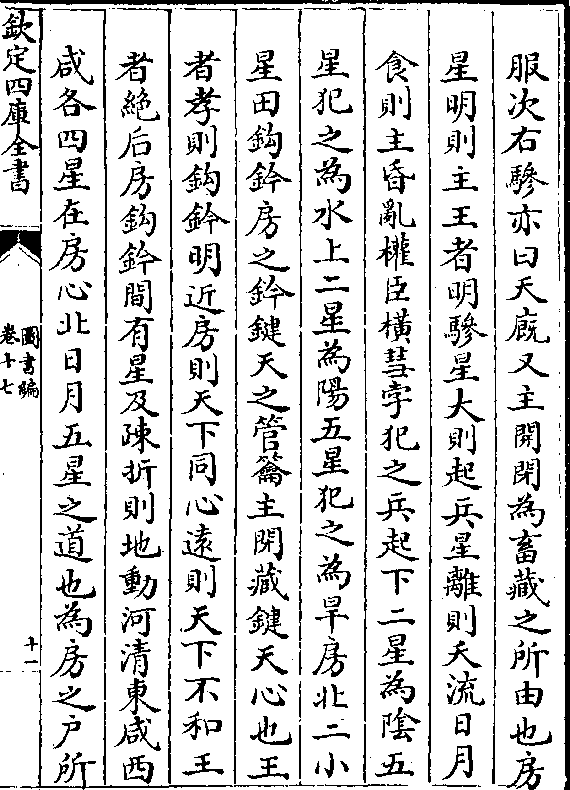 服次右驂亦曰天廐又主開閉為畜藏之所由也房
星明則主王者明驂星大則起兵星離則夭流日月
食則主昏亂權臣橫彗孛犯之兵起下二星為隂五
星犯之為水上二星為陽五星犯之為旱房北二小
星田鈎鈐房之鈐鍵天之管籥主閉藏鍵天心也王
者孝則鈎鈐明近房則天下同心逺則天下不和王
者絶后房鈎鈐間有星及疎折則地動河清東咸西
咸各四星在房心北日月五星之道也為房之户所
欽定四庫全書
圖書編
卷十七
十一